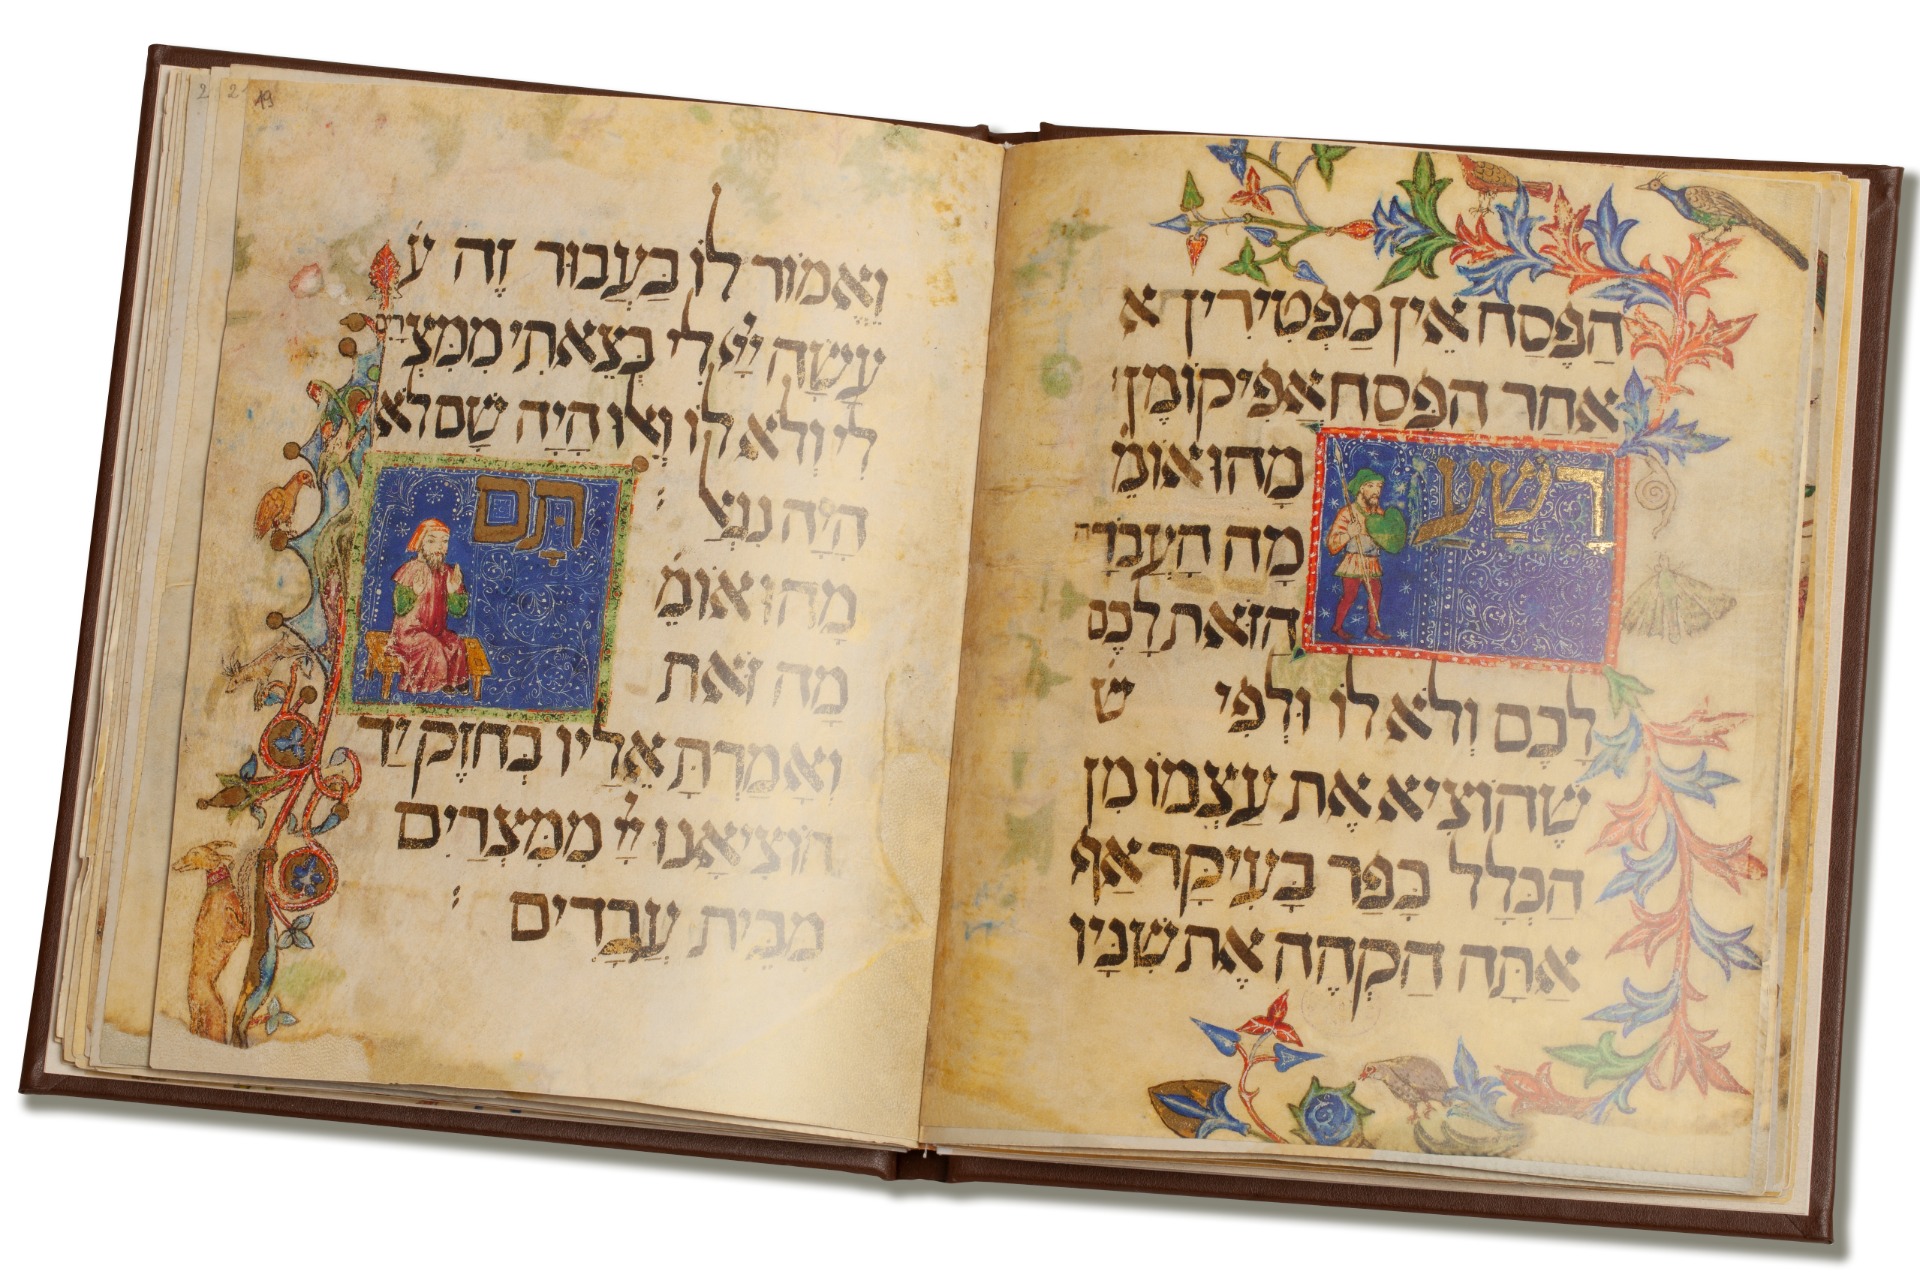 הַפֶּסַח אֵין מַפְטִירִין א
אַחַר הַפֶּסַח אֲפִיקוֹמָן
רָשָׁע
מָהוּ אוֹמֵ
מָה הָעֲבֹדָה
הַזֹּאת לָכֶם
לָכֶם וְלֹא לוֹ וּלְפִי ש
שֶׁהוֹצִיא אֶת עַצְמוֹ מִן
הַכְּלָל כָּפַר בָּעִיקָר אַף
אַתָּה הַקְהֵה אֶת שִׁנָּיו
19
וֶאֱמוֹר לוֹ בַּעֲבוּר זֶה ע
עָשָׂה יְיָ לִי בְּצֵאתִי מִמִּצְרַיִם
לִי וְלֹא לוֹ וְאִלּוּ הָיָה שָׁם לֹא
הָיָה נִגְאָל :
תָּם
מָהוּ אוֹמֵ
מַה זֹּאת
וְאָמַרְתָּ אֵלָיו בְּחֹזֶק יָד
הוֹצִיאָנוּ יְיָ מִמִּצְרַיִם
מִבֵּית עֲבָדִים :